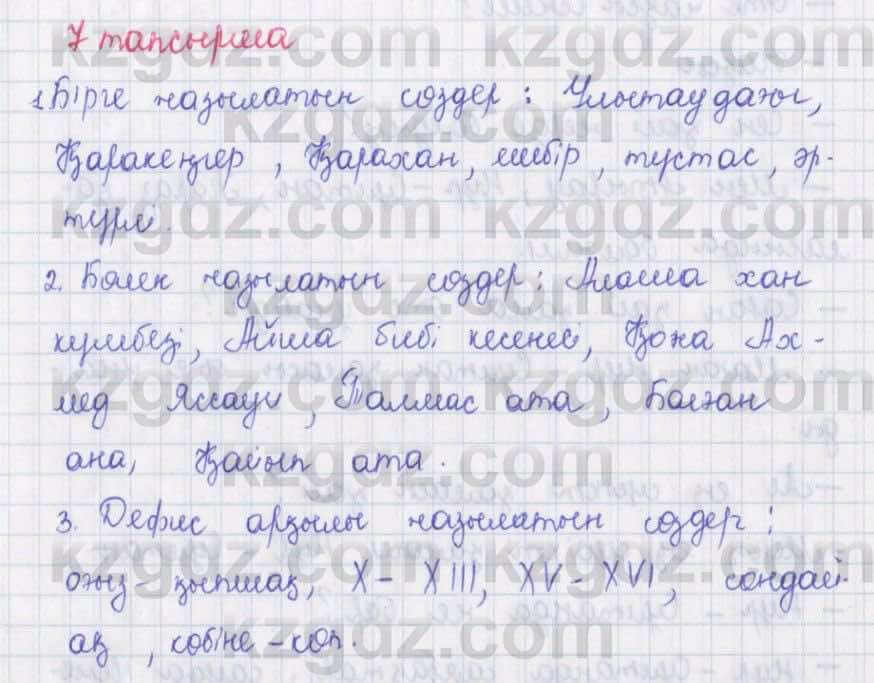 7 тапсырма
1. Бірге жазылатын сөздер: Ұлытаудағы,
Қаракеңгер, Қарахан, ешбір, тұстас, әр-
түрлі.
2. Бөлек жазылатын сөздер: Алаша хан
күмбезі, Айша бибі кесенесі, Қожа Ах-
мед Яссауи, Талмас ата, Болған
ана, Қайып ата.
3. Дефис арқылы жазылатын сөздер:
оғыз-қыпшақ, X-XIII, XV-XVI, сондай-
ақ, көбіне-көп.